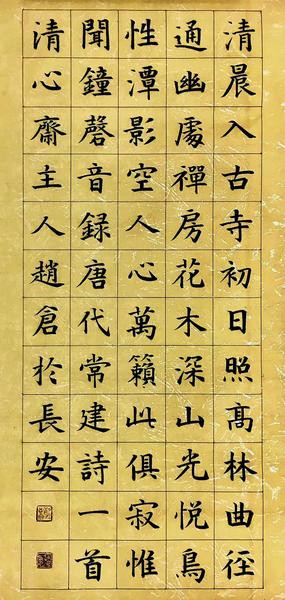 清晨入古寺初日照髙林曲徑
通幽處禪房花木深山光悦鳥
性潭影空人心萬籟此俱寂惟
聞鐘磬音録唐代常建詩一首
清心齋主人趙倉於長安